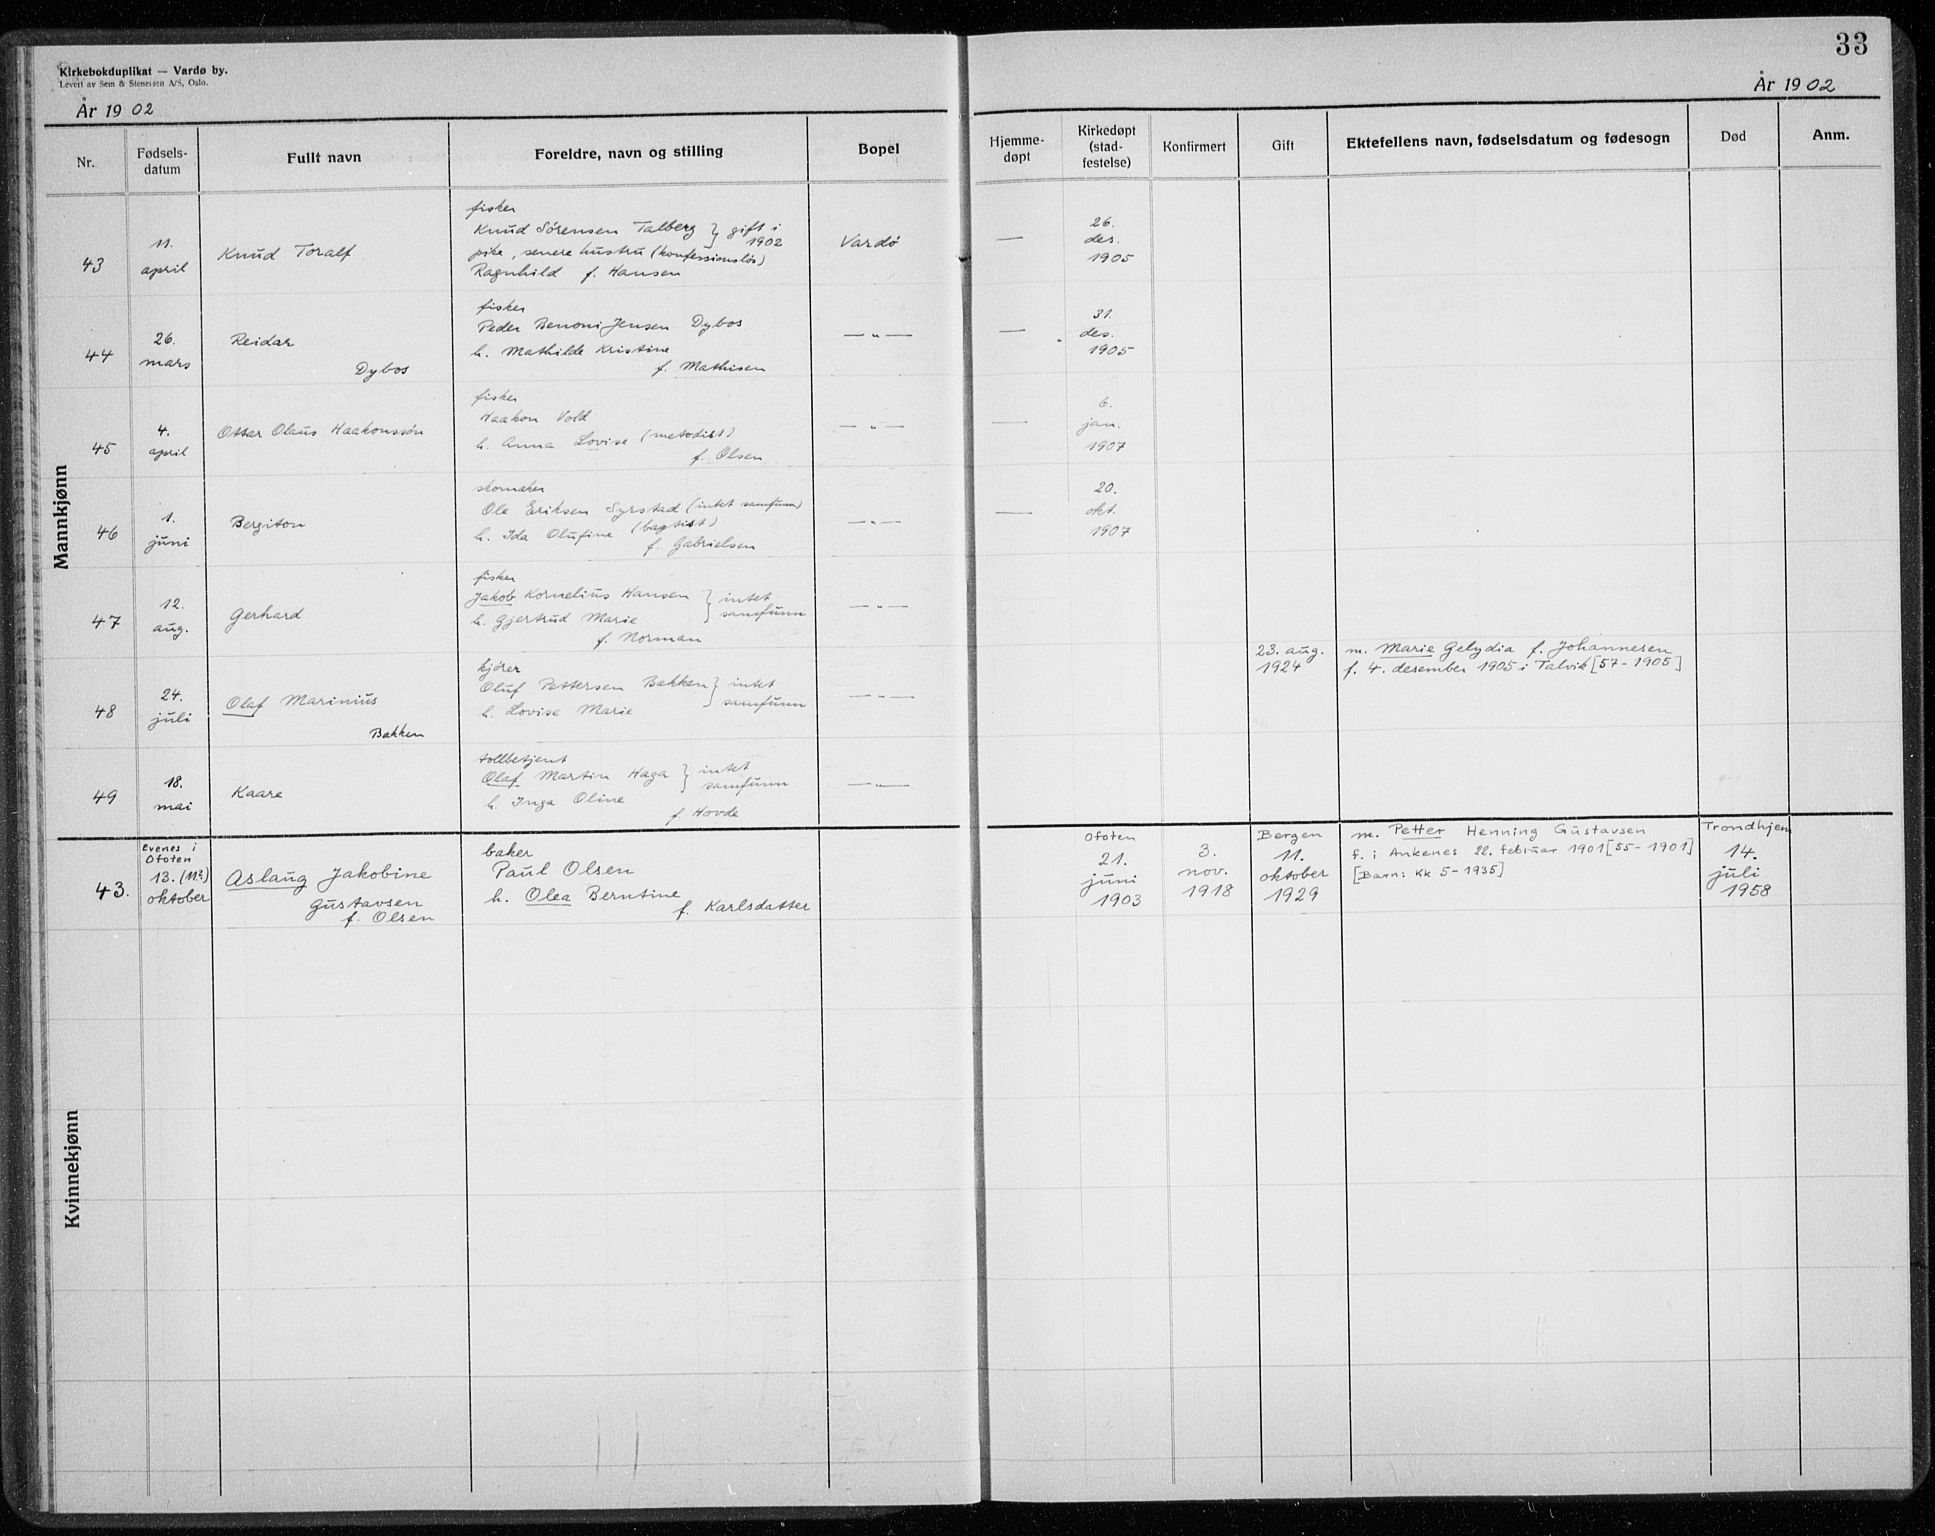 Kirkebokduplikat — Vardø by.
Levert av Sem & Stenersen A/S, Oslo.
År 1902
33
År 1902
Nr.
Fødsels-
datum
Fullt navn
Foreldre, navn og stilling
Bopel
Hjemme-
døpt
Kirkedøpt
(stad-
festelse)
Konfirmert
Gift
Ektefellens navn, fødselsdatum og fødesogn
Død
Anm.
Mannkjønn
43
11.
april
Knud Toralf
fisker
Knud Sörensen Talberg } gift i
1902
pike, senere hustru (konfessionslös)
Ragnhild f. Hansen
Vardö
—
26.
des.
1905
44
26.
mars
Reidar
Dybos
fisker
Peder Benoni Jensen Dybos
h. Mathilde Kristine
f. Mathisen
— " —
—
31.
des.
1905
45
4.
april
Ottar Olaus Haakonssön
fisker
Haakon Vold
h. Anna Lovise (metodist)
f. Olsen
— " —
—
6.
jan.
1907
46
1.
juni
Bergiton
skomaker
Ole Eriksen Syrstad (intet samfunn)
h. Ida Olufine (baptist)
f. Gabrielsen
— " —
—
20.
okt.
1907
47
12.
aug.
Gerhard
fisker
Jakob Kornelius Hansen } intet
h. Gjertrud Marie samfunn
f. Norman
— " —
48
24.
juli
Olaf Marinius
Bakken
kjörer
Oluf Pettersen Bakken } intet
h. Lovise Marie samfunn
— " —
23. aug.
1924
m. Marie Gelydia f. Johannesen
f. 4. desember 1905 i Talvik [57-1905]
49
18.
mai
Kaare
tollbetjent
Olaf Martin Haga } intet
samfunn
h. Inga Oline
f. Hovde
— " —
Kvinnekjønn
43.
Evenes i
Ofoten
13. (11?)
oktober
Aslaug Jakobine
Gustavsen
f. Olsen
baker
Paul Olsen
h. Olea Berntine
f. Karlsdatter
Ofoten
21.
juni
1903
3.
nov.
1918
Bergen
11.
oktober
1929
m. Petter Henning Gustavsen
f. i Ankenes 22. februar 1901 [55-1901]
[Barn: Kk 5-1935]
Trondhjem
14.
juli
1958